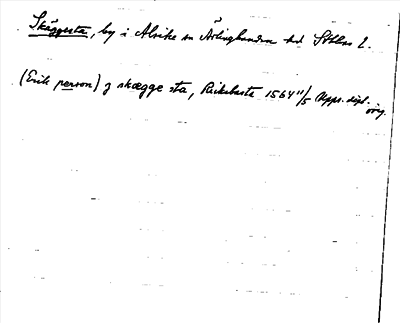 Skäggesta, by i Alsike sn Ärlinghundra hd Sthlms l.
(Erik person) j skægge sta, Rickebasta 1564 11/5 Upps. dipl. orig.